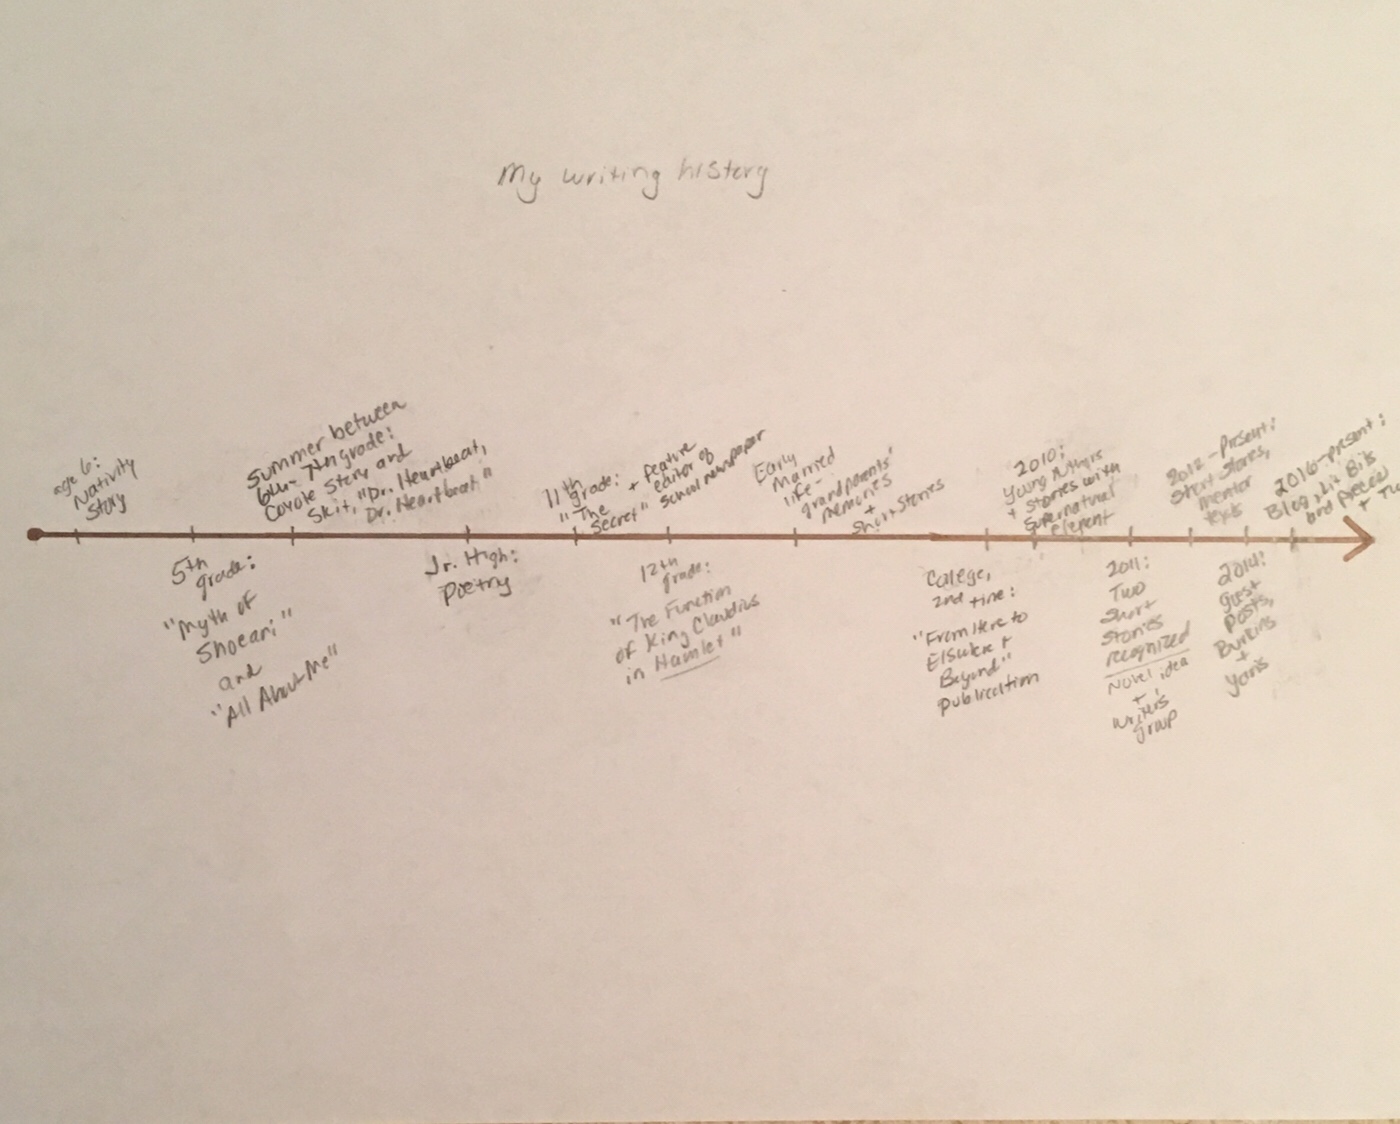 My writing history
age 6:
Nativity
Story
5th
grade:
"Myth of
Shoeani"
and
"All About Me"
Summer between
6th - 7th grade:
Coyote Story and
Skit, "Dr. Heartbeat,
Dr. Heartbeat"
Jr. High:
Poetry
11th
grade:
"The
Secret"
+ feature
editor of
school newspaper
12th
grade:
"The Function
of King Claudius
in Hamlet"
Early
Married
life-
grandparents'
memories
+
short stories
College,
2nd time:
"From Here to
Beyond"
publication
2010:
Young Authors
+ stories with
supernatural
element
2011:
Two
short
stories
recognized
Novel idea
+
writer's
group
2012-present:
Short stories,
mentor
texts
2014:
guest
posts,
+
2016-present:
Blog, Lit Bits
and Pieces
+